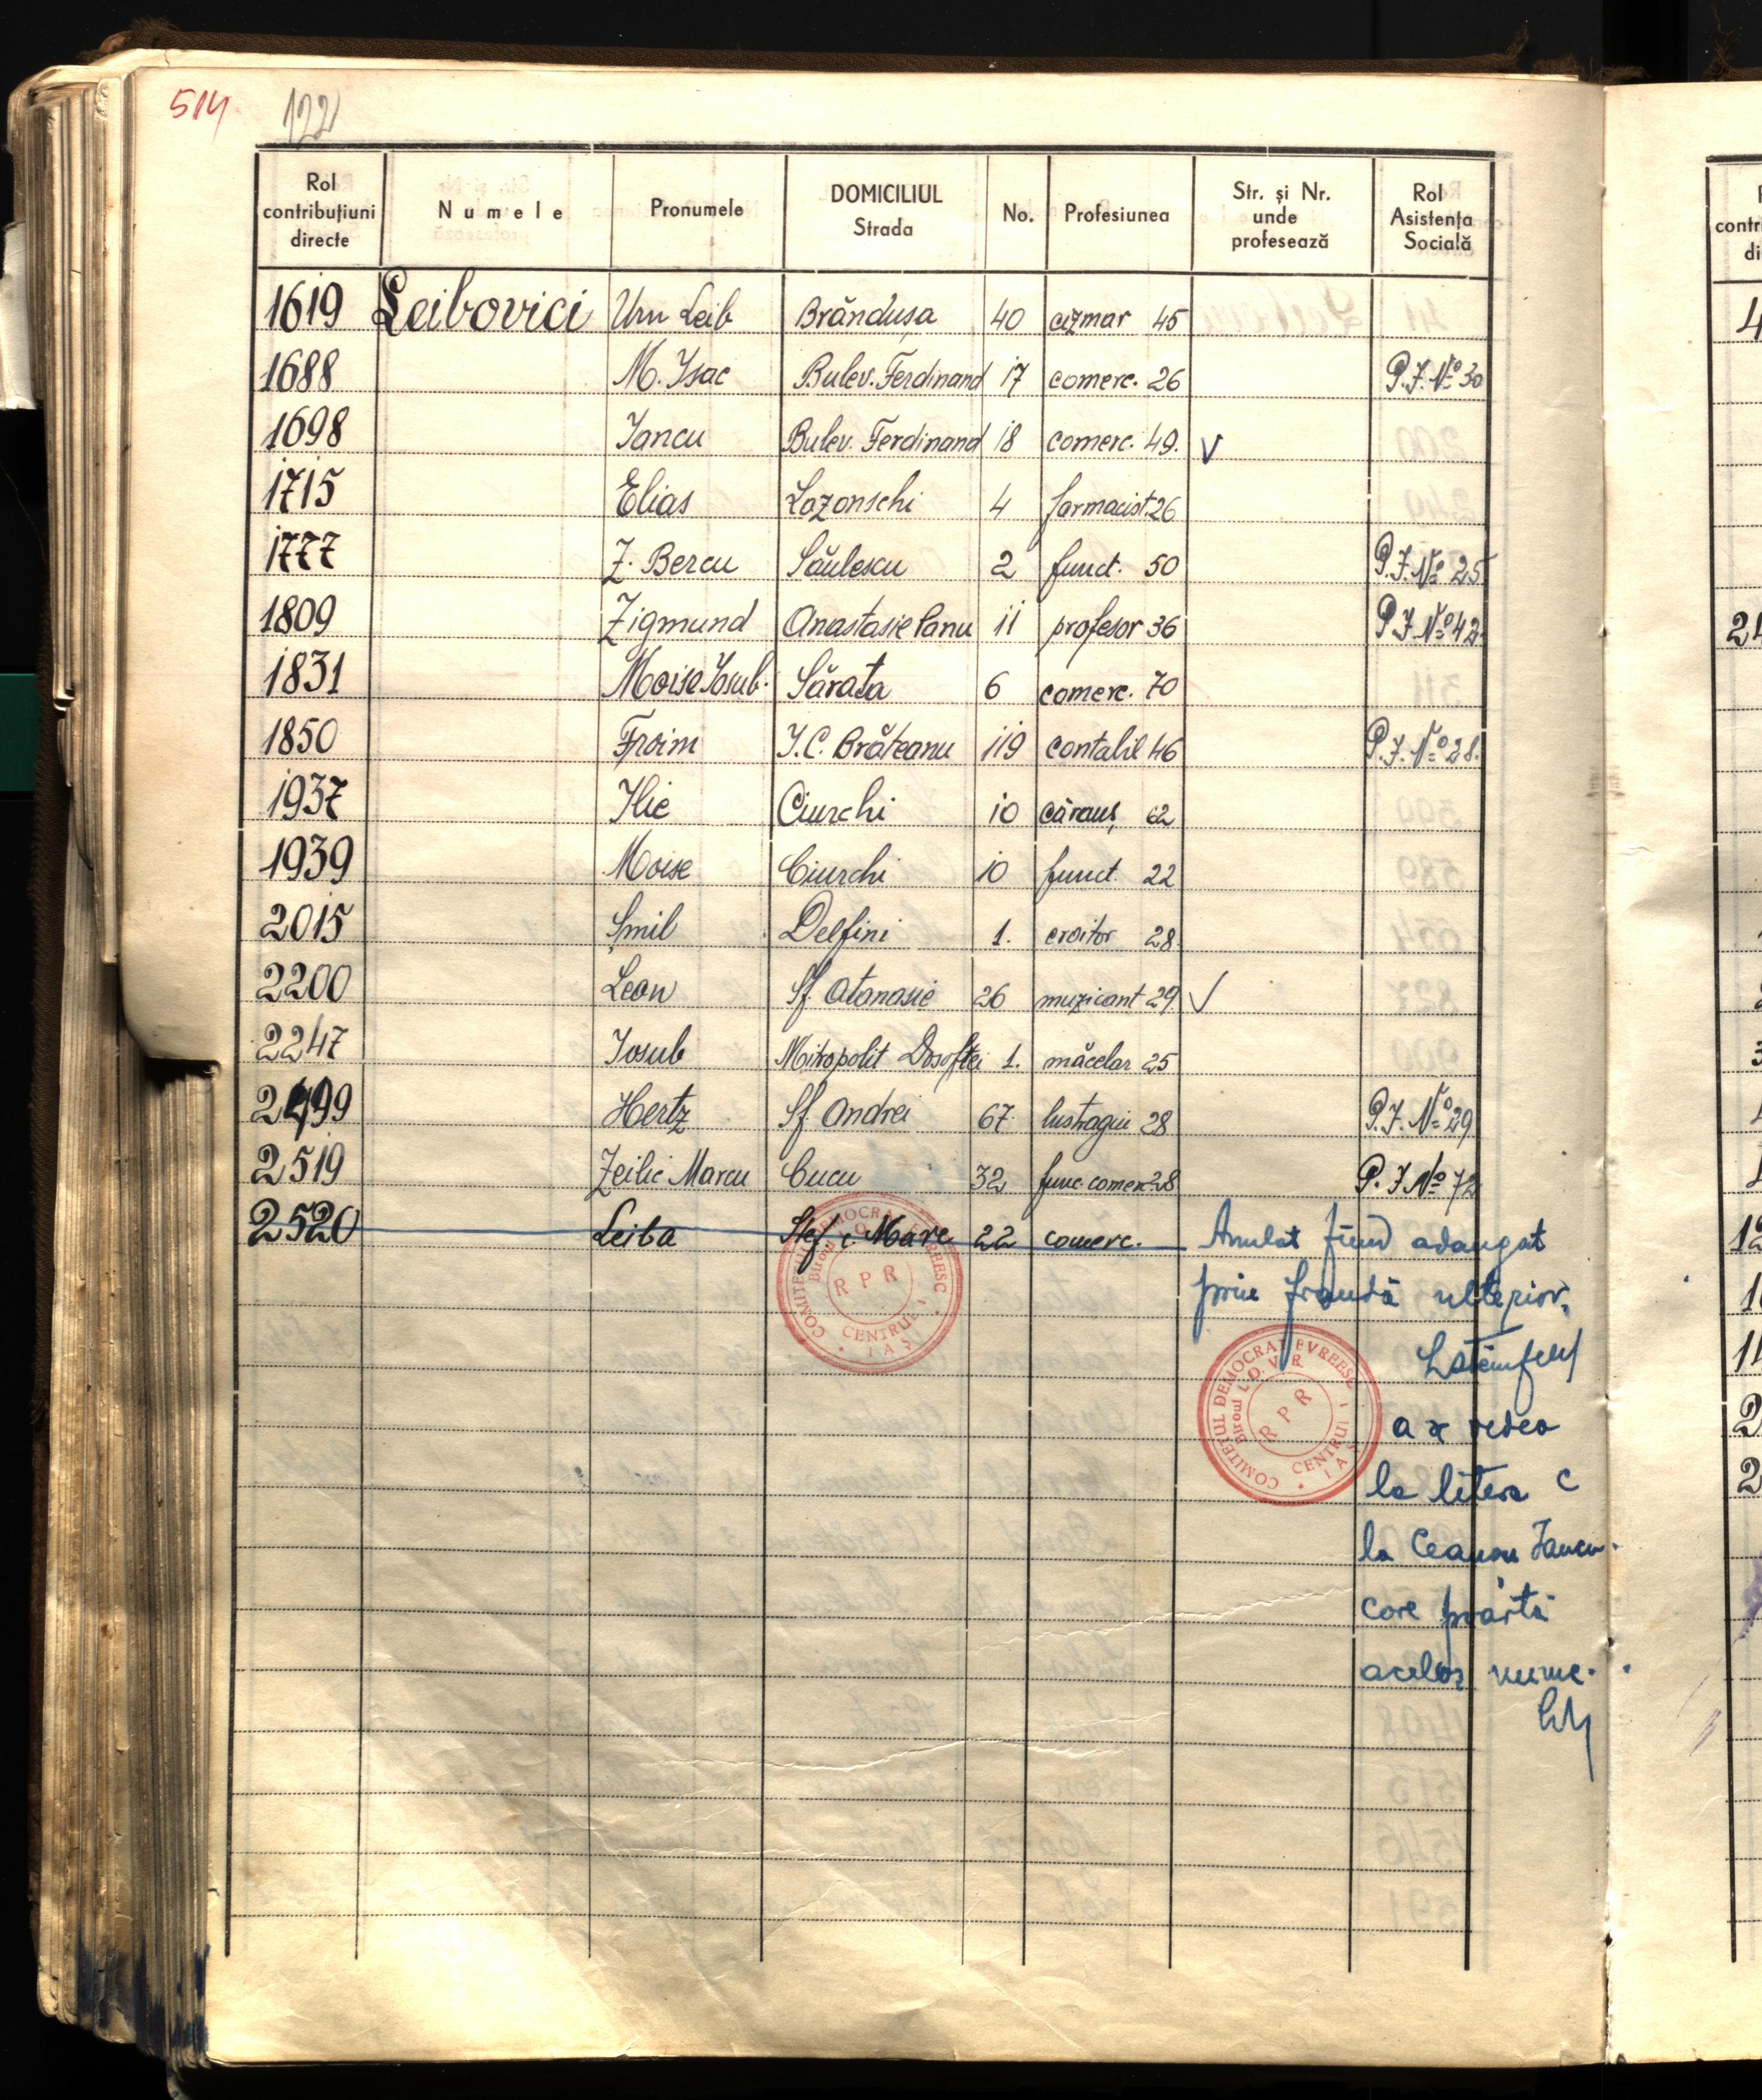 514 122
Rol contribuțiuni directe Numele Pronumele DOMICILIUL Strada No. Profesiunea Str. și Nr. unde profesează Rol Asistența Socială
1619 Leibovici Urn Leib Brăndușa 40 cizmar 45
1688 M. Isac Bulev. Ferdinand 17 comerc. 26 P.J. No 30
1698 Iancu Bulev. Ferdinand 18 comerc. 49. V
1715 Elias Lozonschi 4 farmacist 26
1777 Z. Bercu Săulescu 2 funct. 50 P.J. No 25
1809 Zigmund Anastasie Panu 11 profesor 36 P.J. No 42
1831 Moise Iosub. Sărata 6 comerc. 70
1850 Froim I.C. Brăteanu 119 contabil 46 P.J. No 28.
1937 Ilie Ciurchi 10 cărauș 62
1939 Moise Ciurchi 10 funct. 22
2015 Șmil Delfini 1. croitor 28
2200 Leon Sf. Atanasie 26 muzicant 29 V
2247 Iosub Mitropolit Dosoftei 1. măcelar 25
2499 Hertz Sf. Andrei 67 lustragiu 28 P.J. No 29
2519 Zeilic Marcu Cucu 32 func. comer. 28 P.J. No 72
2520 Leiba Ștef. c. Mare 22 comerc. Anulat fiind adaugat
prin fraudă ulterior.
a se vedea
la litera C
la Iancu.
care poartă
acelaș nume.
COMITETUL DEMOCRAT EVREESC
Biroul I.O.V.R
RPR
CENTRUL I
IAȘI
COMITETUL DEMOCRAT EVREESC
Biroul I.O.V.R
RPR
CENTRUL I
IAȘI